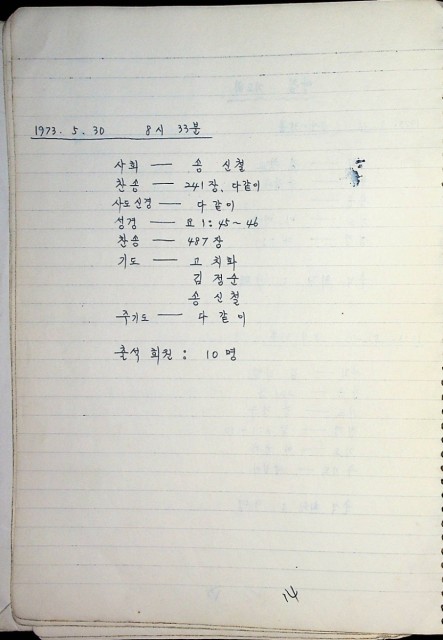 1973. 5. 30 8시 33분
사회 — 송 신철
찬송 — 241장, 다같이
사도신경 — 다 같이
성경 — 요 1: 45~46
찬송 — 487장
기도 — 고 치화
김 정순
송 신철
주기도 — 다 같이
출석 회원 : 10명
14